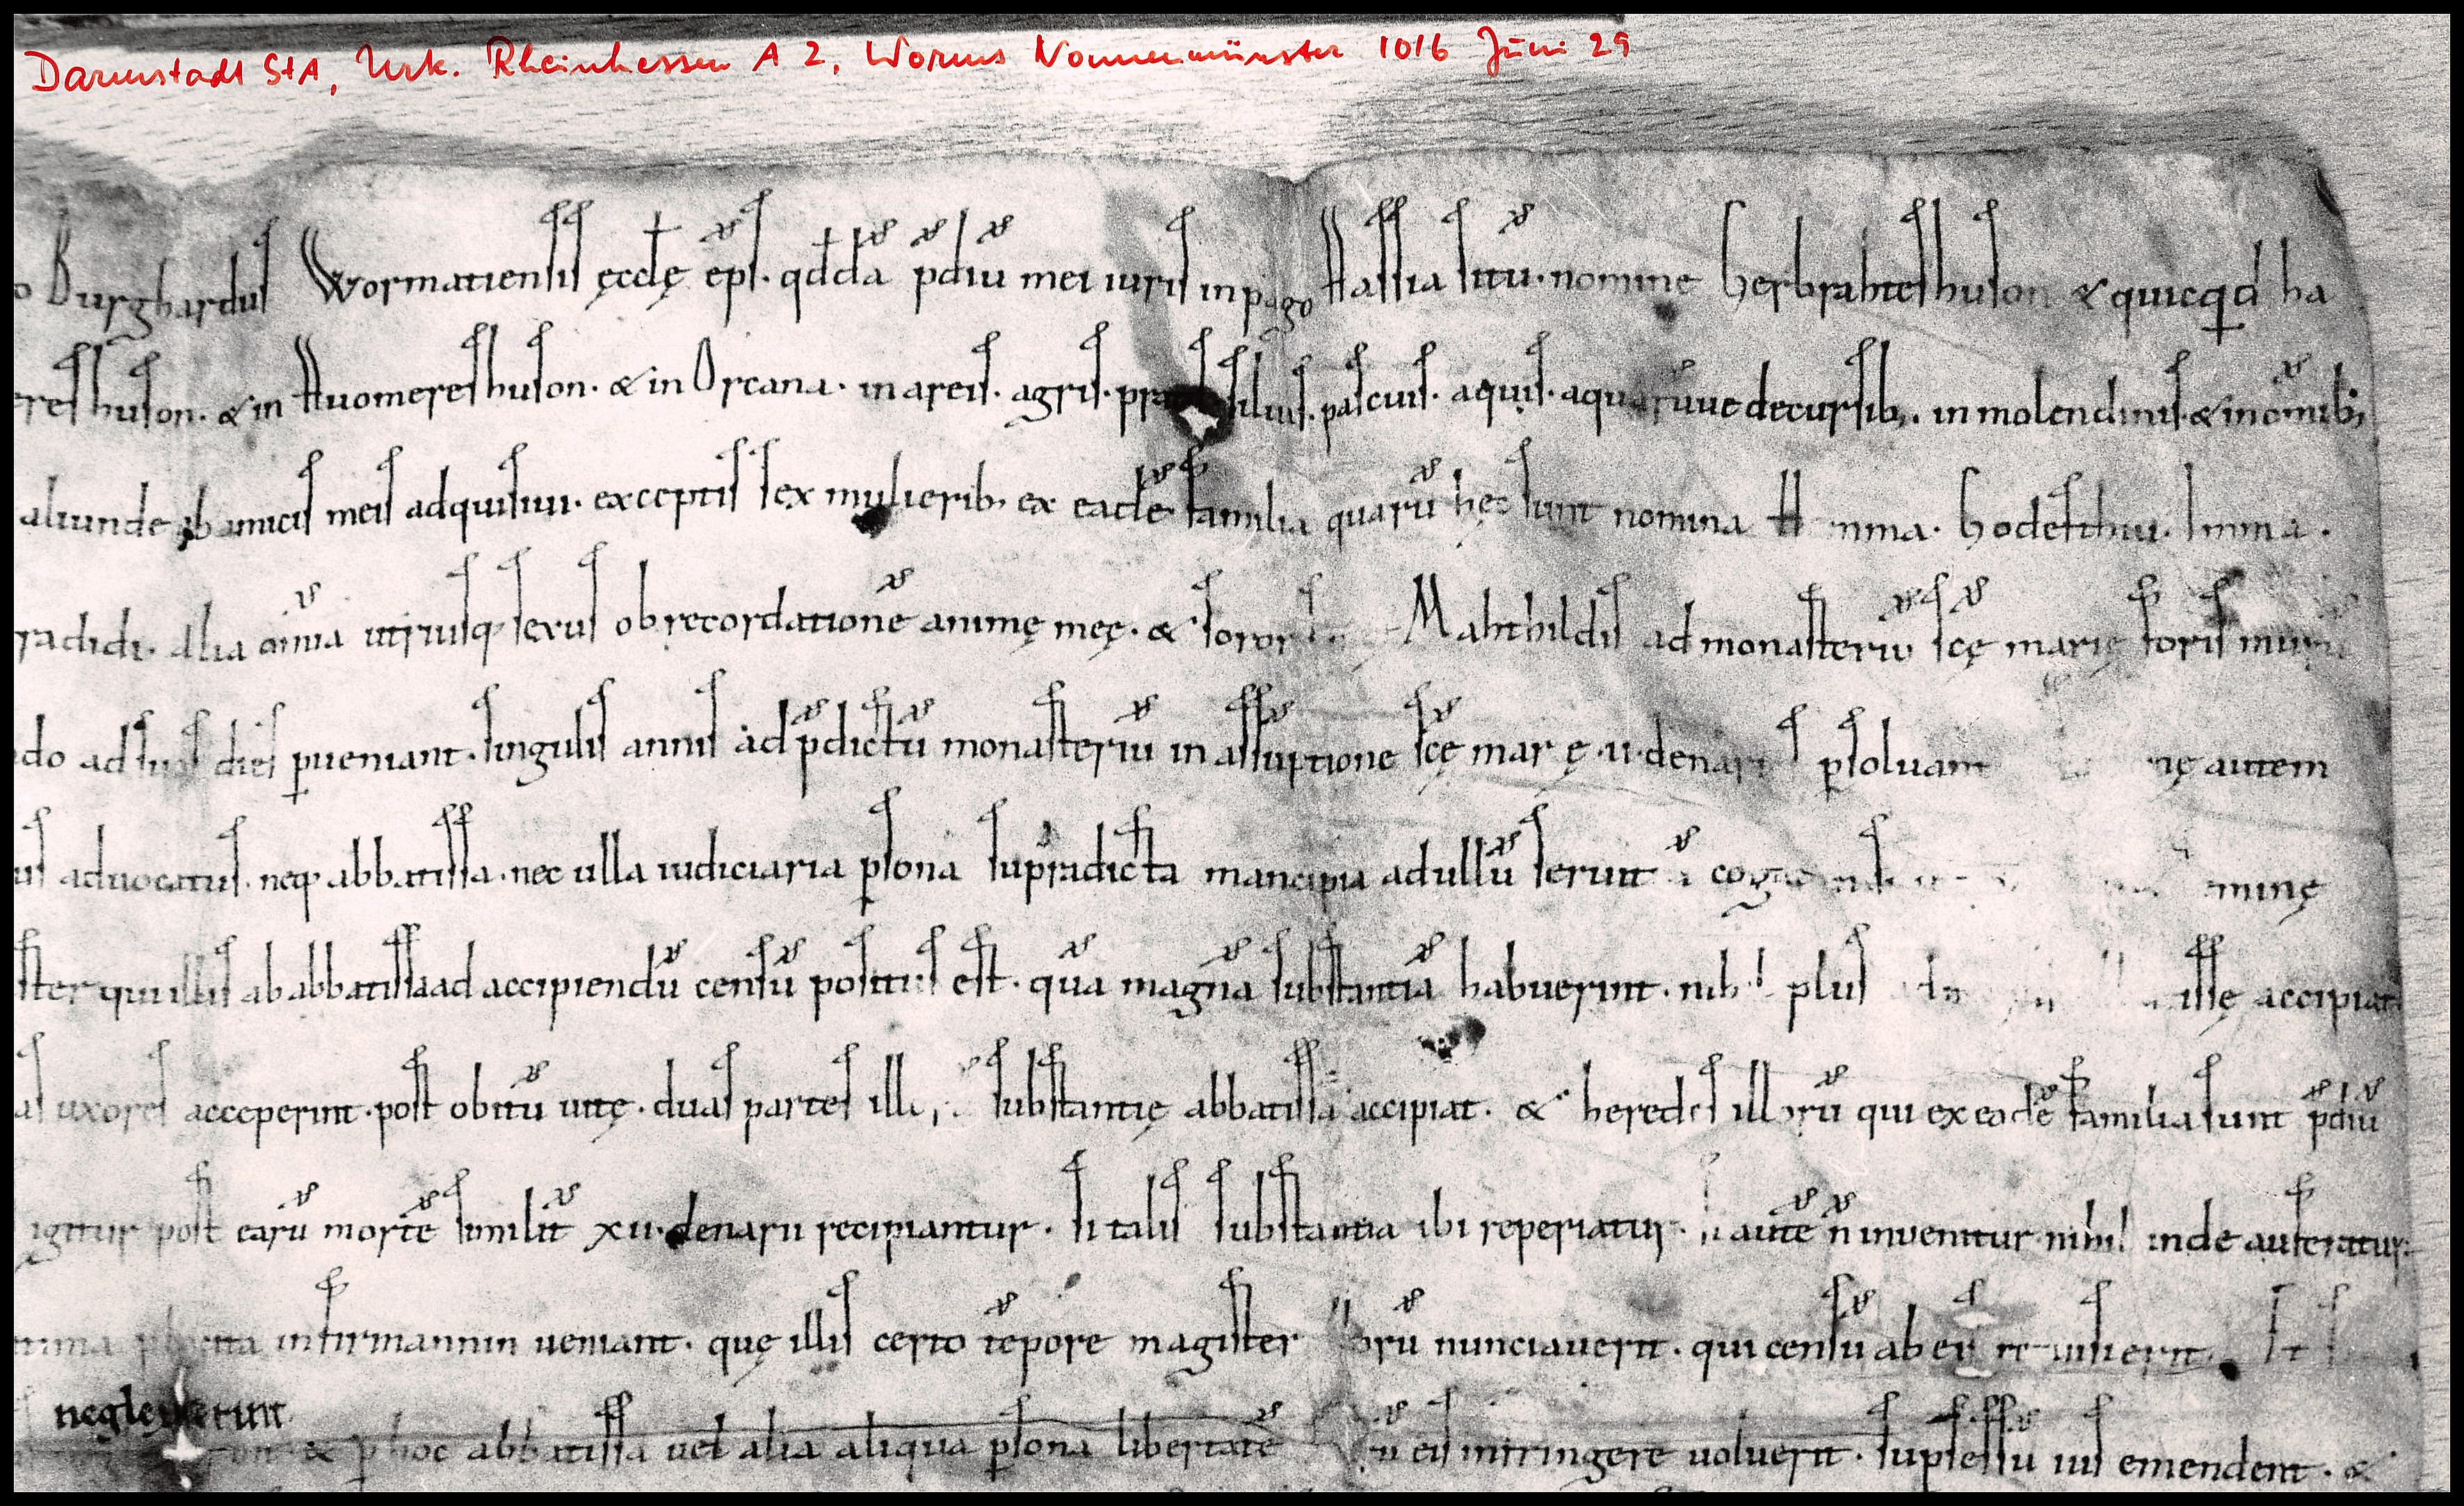 Darmstadt StA, Urk. Rheinhessen A 2, Worms Nonnenmünster 1016 Juni 29
Burghardus Wormatiensis ęcclę ep̄s. qdda p̄diū mei iuris in pago Hassia sitū. nomine Herbrahteshuson & quicqd ha
reshuson. & in Huomereshuson. & in Orcana. in areis. agris. siluis. pascuis. aquis. aquarūue decursib; in molendinis. & in omīib;
aliunde ab amicis meis adquisiui. exceptis sex mulierib; ex eadē familia quarū hęc sunt nomina nma. Hodesthui. Imma.
radidi. Alia om̄ia utriusq; sexus ob recordationē animę meę. & soror Mahthildis ad monasteriū scę marię foris murū
do ad suos dies pueniant. singulis annis ad p̄dictū monasteriū in assūptione scę mar ę .ii. denar psoluant nę autem
us aduocatus. neq; abbatissa. nec ulla iudiciaria psona sup̄radicta mancipia ad ullū seruit minę
ster qui illis ab abbatissa ad accipiendū censū positus est. quā magnā substantiā habuerint. nihil plus illę accipiat
as uxores acceperint. post obitū uitę. duas partes substantię abbatissa accipiat. & heredes illorū qui ex eadē familia sunt p̄diū
igitur post earū mortē similit̄ xii. denarii recipiantur. si talis substantia ibi reperiatur. si autē n̄ inuenitur nihil inde auferatur.
infirmannin ueniant. quę illis certo tēpore magister nunciauerit. qui censū ab eis
neglexerint
& p hoc abbatissa uel alia aliqua psona libertatē eis infringere uoluerit. supsessū ius emendent. &